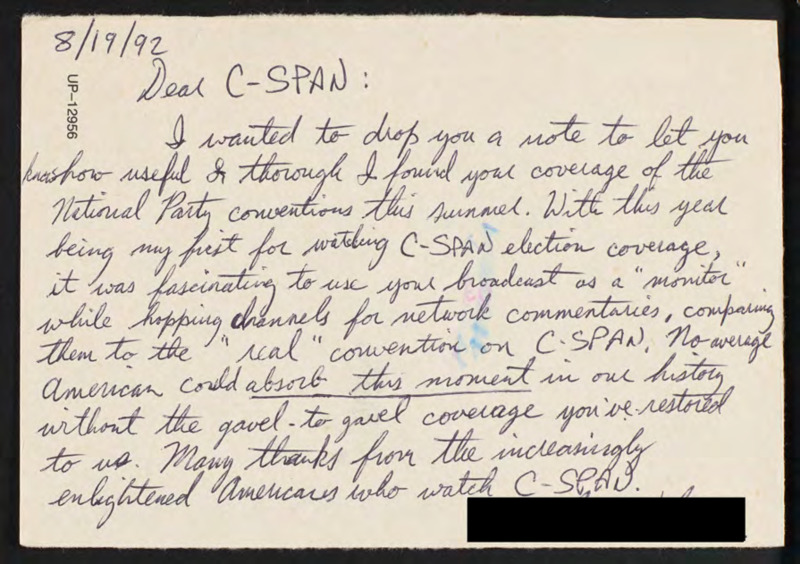 8/19/92
UP-12956
Dear C-SPAN:
I wanted to drop you a note to let you
know how useful & thorough I found your coverage of the
National Party conventions this summer. With this year
being my first for watching C-SPAN election coverage,
it was fascinating to use your broadcast as a "monitor"
while hopping channels for network commentaries, comparing
them to the "real" convention on C-SPAN. No average
American could absorb this moment in our history
without the gavel-to gavel coverage you've restored
to us. Many thanks from the increasingly
enlightened Americans who watch C-SPAN.